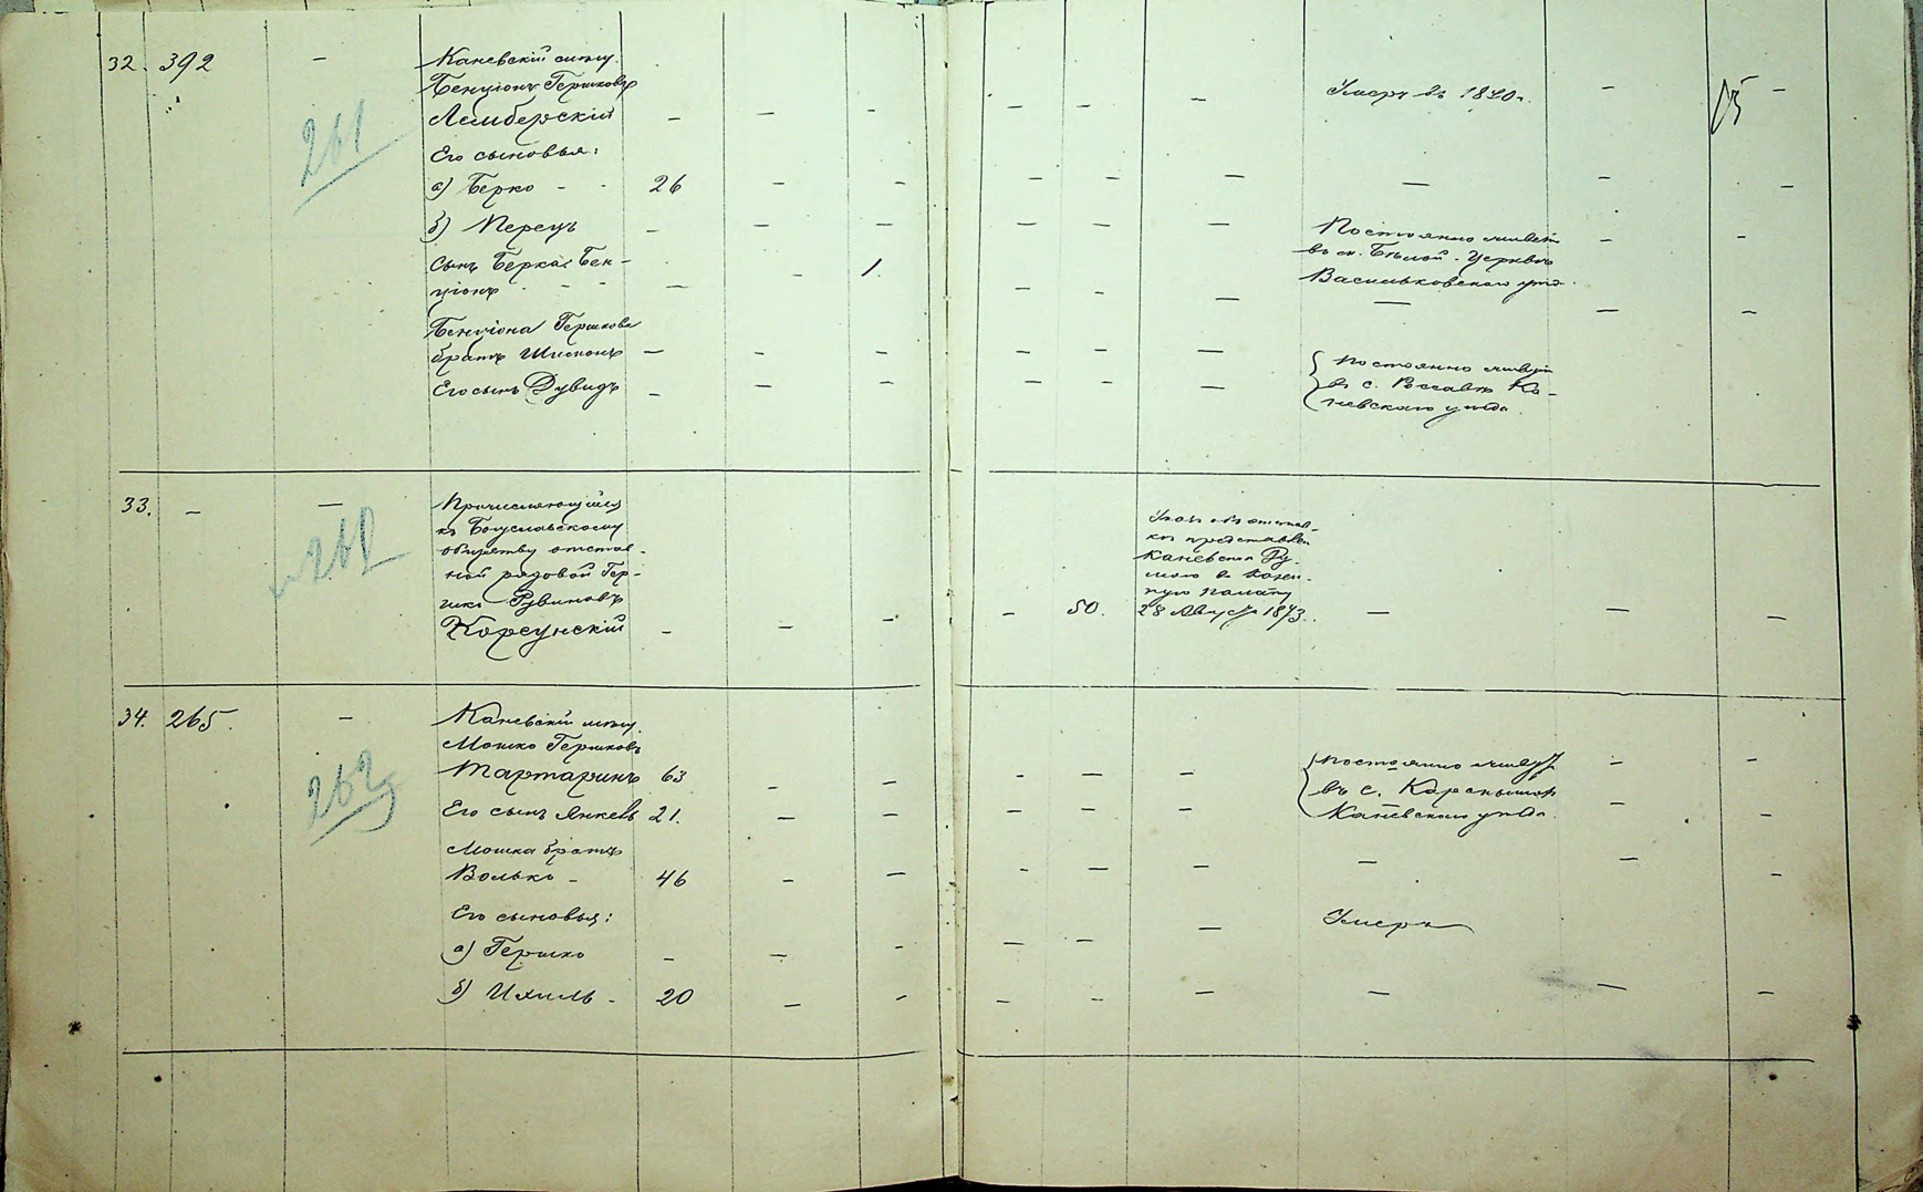 32. 392 — Каневскій мѣщ.
Бенціонъ Гершковъ
Лемберскій — — — — — — Умеръ въ 1870 г. — —
261
Его сыновья:
а) Берко - - 26 — — — — — — — —
б) Перецъ — — — — — — Постоянно живетъ — —
въ м. Бѣлой-Церкви
Васильковскаго уѣзд.
Сынъ Берка: Бен-
ціонъ - - — — 1. — — — — —
Бенціона Гершкова
братъ Шимонъ — — — — — — { Постоянно живут
Его сынъ Дувидъ — — — — — — въ с. Россавѣ Ка-
невскаго уѣзда.
33. — — Причисляющійся
262
къ Богуславскому
обществу отстав-
ной рядовой Гер-
шко Рувиновъ
Корсунскій — — — — 50.
представлен
Каневскою Ду-
мою въ Казен-
ную палату
28 Августа 1873. — — —
34. 265. — Каневскій мѣщ.
Мошко Гершковъ
Тартаринъ 63 — — — — — { Постоянно живут — —
262
въ с. Карапышахъ
Каневскаго уѣзда.
Его сынъ Янкель 21. — — — — — — —
Мошка братъ
Волько - 46 — — — — — — — —
Его сыновья:
а) Гершко — — — — — — Умеръ
б) Ихиль - 20 — — — — — — — —